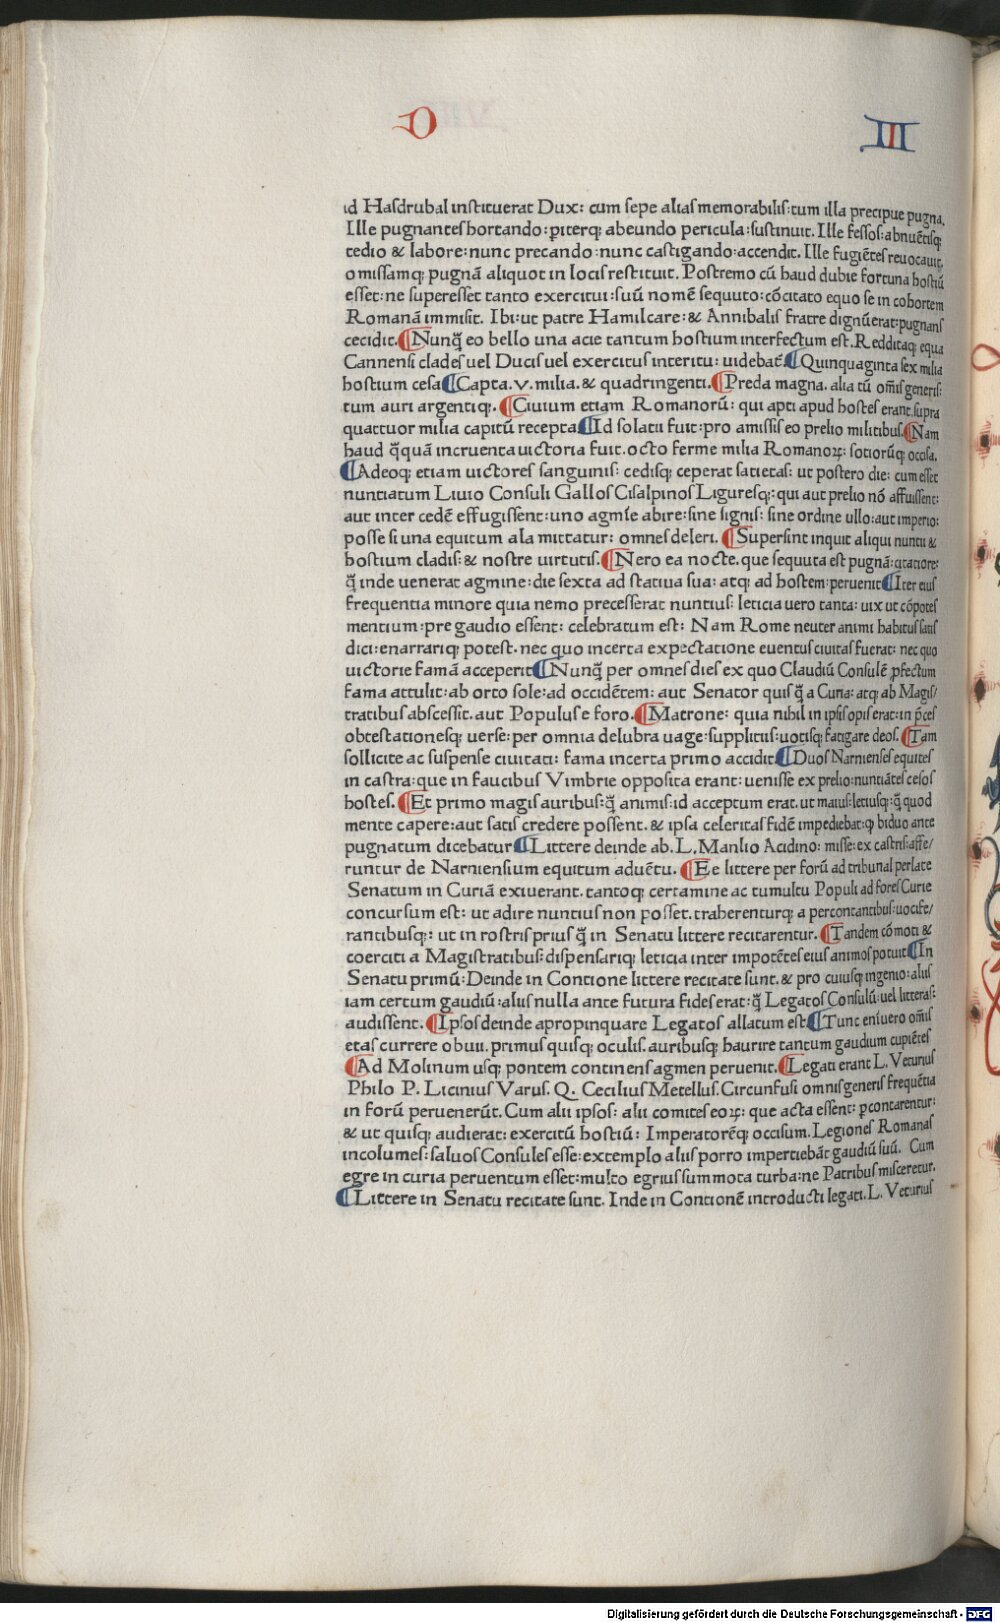 D III
id Hasdrubal instituerat Dux: cum sepe alias memorabilis: tum illa precipue pugna.
Ille pugnantes hortando: ꝑiterqꝫ abeundo pericula: sustinuit. Ille fessos: abnuētisqꝫ
tedio & labore: nunc precando: nunc castigando: accendit. Ille fugiētes reuocauit.
omissamqꝫ pugnā aliquot in locis restituit. Postremo cū haud dubie fortuna hostiū
esset: ne superesset tanto exercitui: suū nomē sequuto: cōcitato equo se in cohortem
Romanā immisit. Ibi: ut patre Hamilcare: & Annibalis fratre dignū erat: pugnans
cecidit. ¶ Nunq̄ eo bello una acie tantum hostium interfectum est. Redditaqꝫ equa
Cannensi clades uel Ducis uel exercitus interitu: uidebat̄. ¶ Quinquaginta sex milia
hostium cesa ¶ Capta. v. milia. & quadringenti. ¶ Preda magna. alia tū om̄is generis:
tum auri argentiqꝫ. ¶ Ciuium etiam Romanorū: qui apti apud hostes erant. supra
quattuor milia capitū recepta ¶ Id solatii fuit: pro amissis eo prelio militibus. ¶ Nam
haud q̄quā incruenta uictoria fuit. octo ferme milia Romanoꝝ: sotiorūqꝫ occisa.
¶ Adeoqꝫ etiam uictores sanguinis: cedisqꝫ ceperat satietas: ut postero die: cum esset
nuntiatum Liuio Consuli Gallos Cisalpinos Liguresqꝫ: qui aut prelio nō affuissent:
aut inter cedē effugissent: uno agmīe abire: sine signis: sine ordine ullo: aut imperio:
posse si una equitum ala mittatur: omnes deleri. ¶ Supersint inquit aliqui nuntii &
hostium cladis: & nostre uirtutis. ¶ Nero ea nocte. que sequuta est pugnā: citatiore:
q̄ inde uenerat agmine: die sexta ad statiua sua: atqꝫ ad hostem: peruenit ¶ Iter eius
frequentia minore quia nemo precesserat nuntius: leticia uero tanta: uix ut cōpotes
mentium: pre gaudio essent: celebratum est: Nam Rome neuter animi habitus satis
dici: enarrariqꝫ potest. nec quo incerta expectatione euentus ciuitas fuerat: nec quo
uictorie famā acceperit ¶ Nunq̄ per omnes dies ex quo Claudiū Consulē ꝓfectum
fama attulit: ab orto sole: ad occidētem: aut Senator quisq̄ a Curia: atqꝫ ab Magis/
tratibus abscessit. aut Populus e foro. ¶ Matrone: quia nihil in ipsis opis erat: in p̄ces
obtestationesqꝫ uerse: per omnia delubra uage: supplitiis: uotisqꝫ fatigare deos. ¶ Tam
sollicite ac suspense ciuitati: fama incerta primo accidit ¶ Duos Narnienses equites
in castra: que in faucibus Vimbrie opposita erant: uenisse ex prelio: nuntiātes cesos
hostes. ¶ Et primo magis auribus: q̄ animis: id acceptum erat. ut maius: letiusqꝫ: q̄ quod
mente capere: aut satis credere possent. & ipsa celeritas fidē impediebat: ꝙ biduo ante
pugnatum dicebatur ¶ Littere deinde ab. L. Manlio Acidino: misse: ex castris: affe/
runtur de Narniensium equitum aduētu. ¶ Ee littere per forū ad tribunal perlate
Senatum in Curiā exiuerant. tantoqꝫ certamine ac tumultu Populi ad fores Curie
concursum est: ut adire nuntius non posset. traherenturqꝫ a percontantibus: uocife/
rantibusqꝫ: ut in rostris prius q̄ in Senatu littere recitarentur. ¶ Tandem cōmoti &
coerciti a Magistratibus: dispensariqꝫ leticia inter impotētes eius animos potuit ¶ In
Senatu primū: Deinde in Contione littere recitate sunt. & pro cuiusqꝫ ingenio: aliis
iam certum gaudiū: aliis nulla ante futura fides erat: q̄ Legatos Consulū: uel litteras:
audissent. ¶ Ipsos deinde apropinquare Legatos allatum est ¶ Tunc enīuero om̄is
etas currere obuii. primus quisqꝫ oculis. auribusqꝫ haurire tantum gaudium cupiētes
¶ Ad Molinum usqꝫ pontem continens agmen peruenit. ¶ Legati erant L. Veturius
Philo P. Licinius Varus. Q. Cecilius Metellus. Circunfusi omnis generis frequētia
in forū peruenerūt. Cum alii ipsos: alii comites eoꝝ: que acta essent: ꝑcontarentur:
& ut quisqꝫ audierat: exercitū hostiū: Imperatorēqꝫ occisum. Legiones Romanas
incolumes: saluos Consules esse: extemplo aliis porro impertiebāt gaudiū suū. Cum
egre in curia peruentum esset: multo egrius summota turba: ne Patribus misceretur.
¶ Littere in Senatu recitate sunt. Inde in Contionē introducti legati. L. Veturius
Digitalisierung gefördert durch die Deutsche Forschungsgemeinschaft - DFG